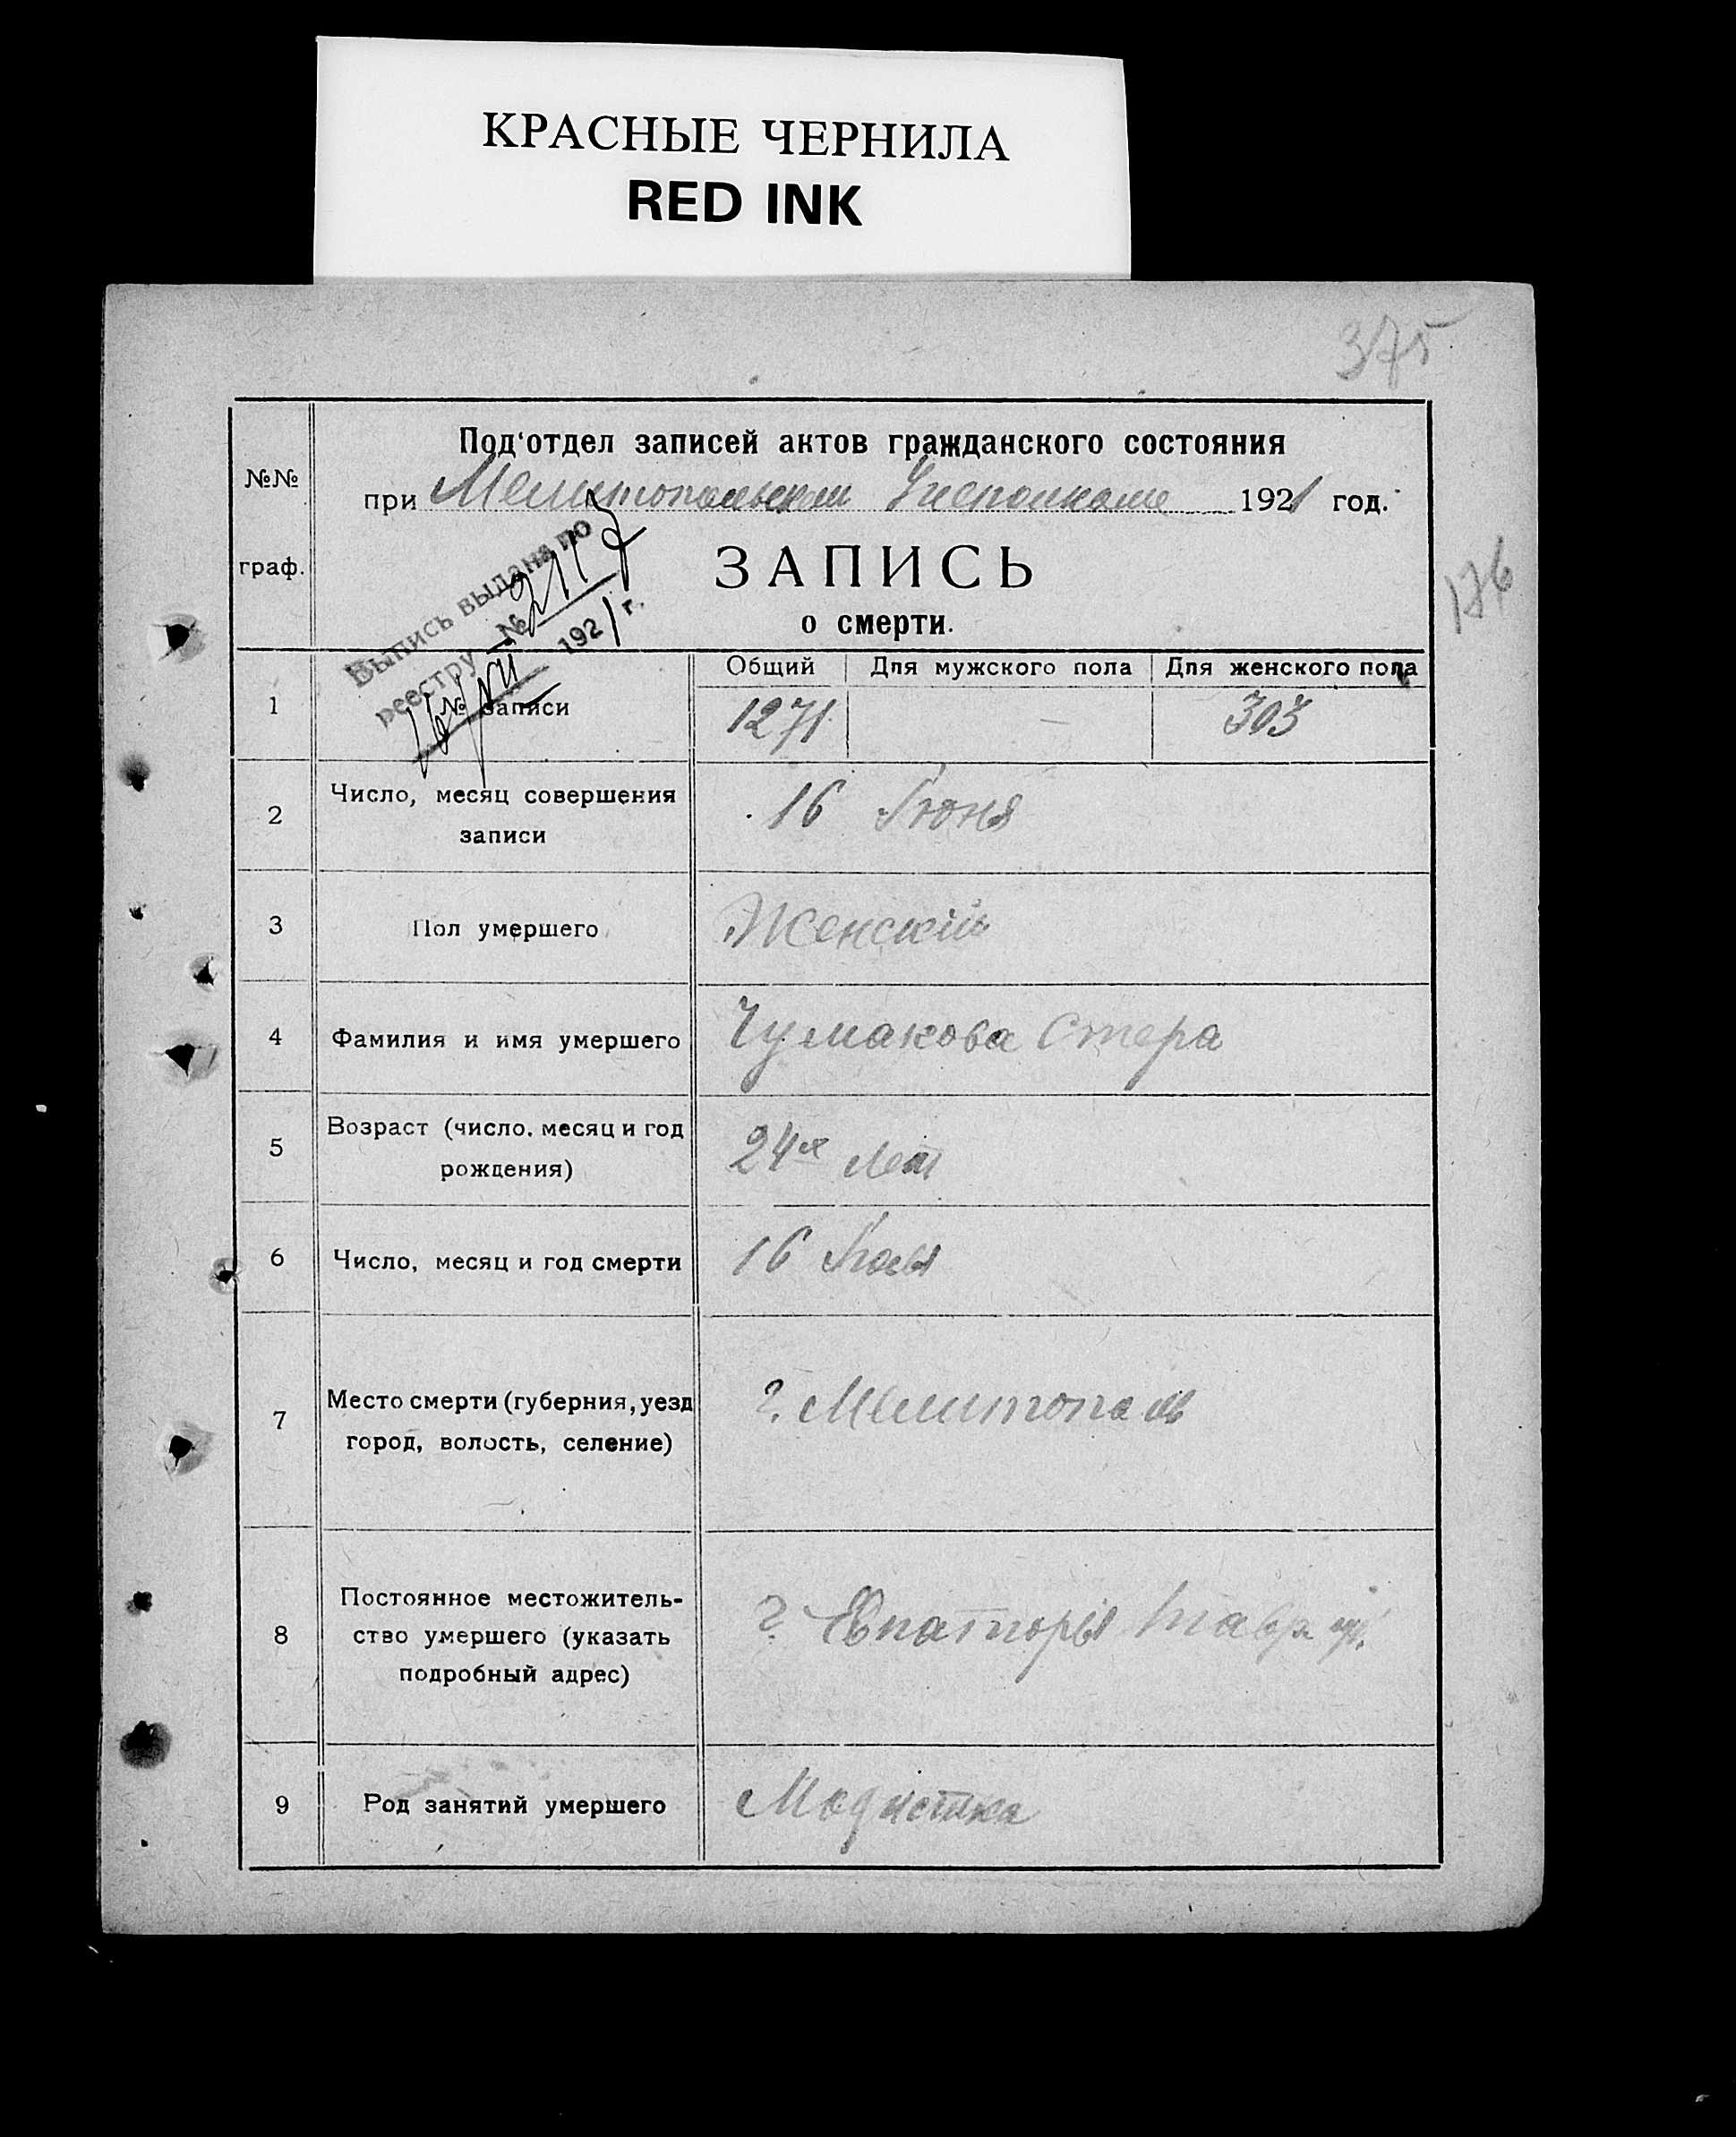 КРАСНЫЕ ЧЕРНИЛА
RED INK
375
Под'отдел записей актов гражданского состояния
№№
при Мелитопольском Уисполкоме 1921 год.
граф.
ЗАПИСЬ
о смерти.
176
Выпись выдана по
реестру № 2117
1921 г.
Общий Для мужского пола Для женского пола
1 № записи 1271 — 303
2 Число, месяц совершения
записи
16 Июня
3 Пол умершего Женскій
4 Фамилия и имя умершего Чумакова Стера
5 Возраст (число, месяц и год
рождения)
24х лет
6 Число, месяц и год смерти 16
7 Место смерти (губерния, уезд
город, волость, селение)
г. Мелитополь
8 Постоянное местожитель-
ство умершего (указать
подробный адрес)
г. Евпаторія Тавр. губ.
9 Род занятий умершего Модистка